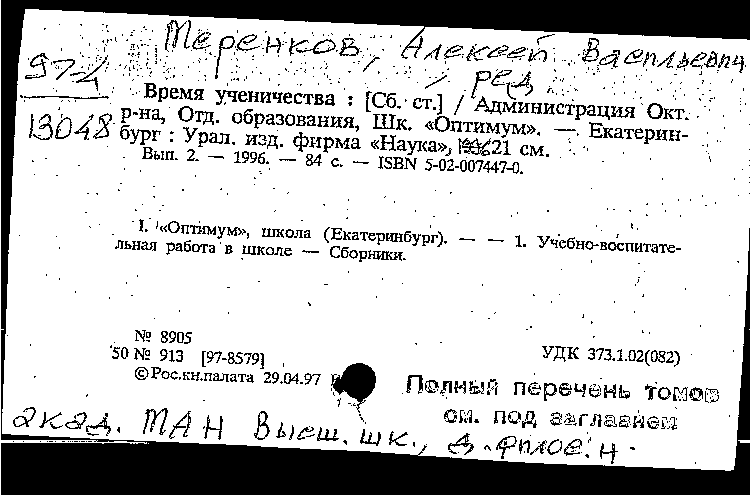 Меренков, Алексей Васильевич,
ред.
97-4
13048
Время ученичества : [Сб. ст.] / Администрация Окт.
р-на, Отд. образования, Шк. «Оптимум». — Екатерин-
бург : Урал. изд. фирма «Наука», 1996 21 см.
Вып. 2. — 1996. — 84 с. — ISBN 5-02-007447-0.
I. «Оптимум», школа (Екатеринбург). — — 1. Учебно-воспитате-
льная работа в школе — Сборники.
№ 8905
50 № 913 [97-8579]
УДК 373.1.02(082)
© Рос.кн.палата 29.04.97
Полный перечень томов
см. под заглавием
акад. МАН Высш. шк., д. филос. н.